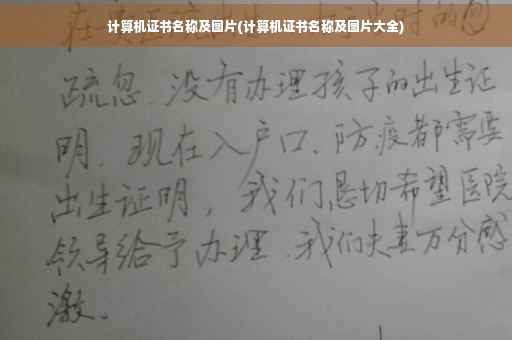 计算机证书名称及图片(计算机证书名称及图片大全)
在 时的
疏忽、没有办理孩子的出生证
明.现在入户口、防疫都需要
出生证明,我们恳切希望医院
领导给予办理.我们夫妻万分感
激。